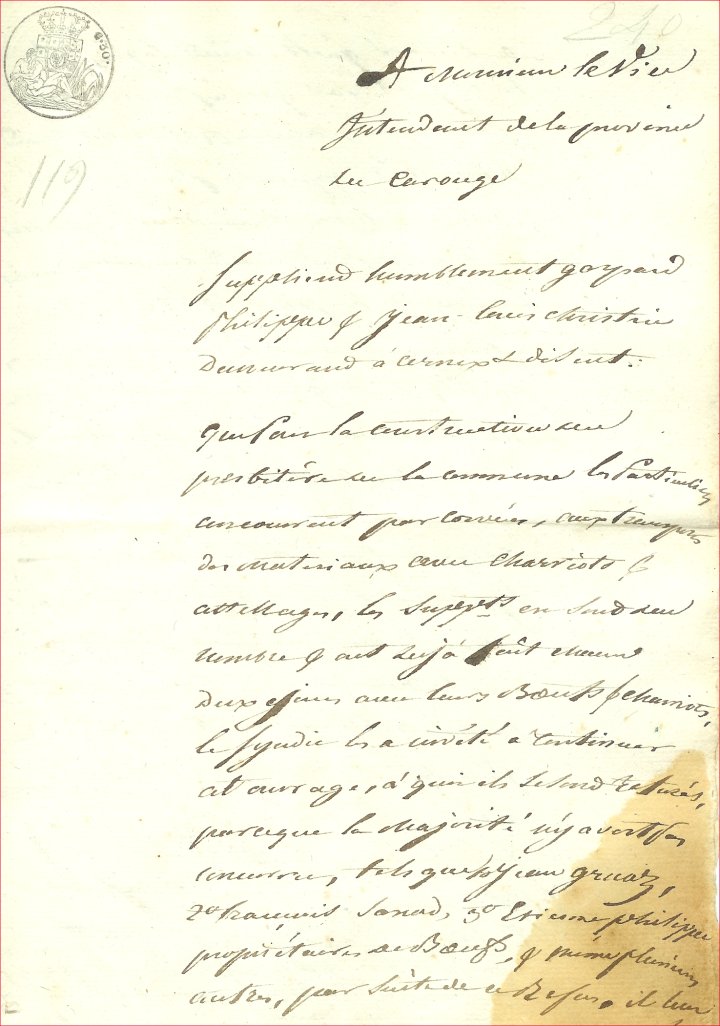 240
C. 30.
119
A Monsieur le Vice
Intendant de la province
de Carouge
Supplient humblement gaspard
philippe & jean-louis christin
Demeurand à cernex & disent:
que pour la construction du
presbitère de la commune les Particuliers
concourent par corvées, aux transports
des materiaux avec charriots &
attellages, les Suppts en sond du
nombre & ont dejà fait chacun
Deux jours avec leurs Bœufs & charriots,
le syndic les a invité à continuer
cet ouvrage, à quoi ils se sond refusés,
parceque la majorité n'y avoit pas
concourru, tels que jean gruaz,
2o françois 3o Etienne philippe
propriétaires de Bœufs, & même plusieurs
autres, par suite de ce Refus, il leur